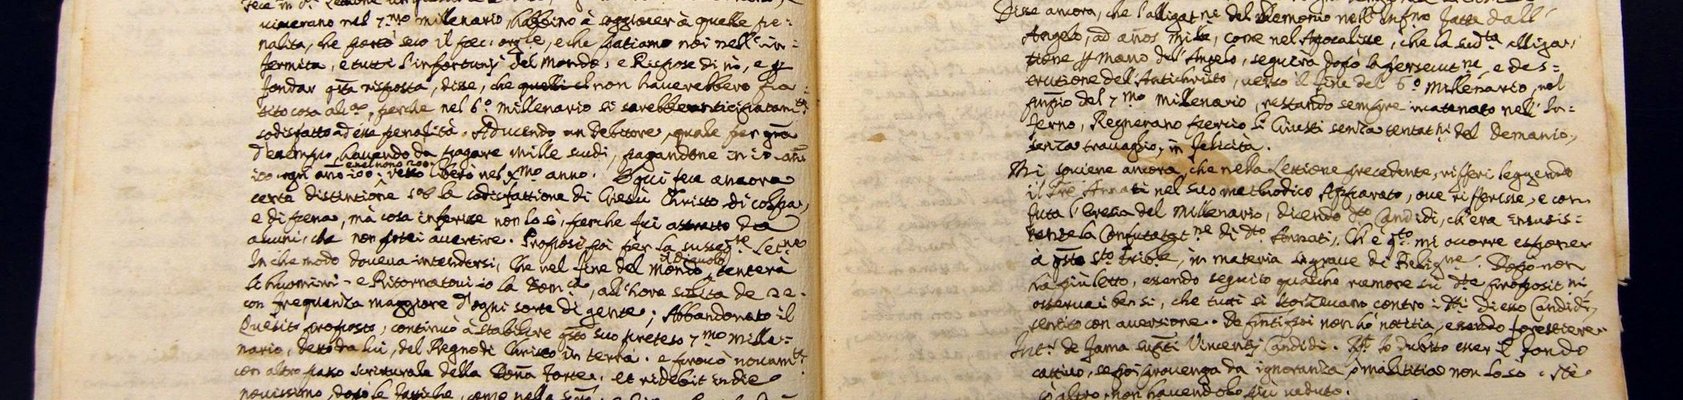 vinerano nel 7.mo millenario, habbino à soggiacer à quelle pe=
nalità, che portò seco il pec: orig.le, e che patiamo noi nell' in=
fermità, e tutti l'infortunij del Mondo, e Rispose di nò, e p
fondar q.ta risposta, disse, che quelli el non haverebbero pa=
tito cosa al.a, perche nel 6.o millenario si sarebbe anticipatam.te
sodisfatto ad essa penalità. Adducendo un debitore, quale per gra
d'esempio, havendo da pagare mille scudi, pagandone in 10 anni
100 ogni anno
certa distintione sop.a la sodisfattione di Giesù Christo di colpa,
e di pena, mà cosa inferisse non lo sò, perche fui astratto da
alcuni, che non potei avertire. Propose poi per la susseg.te Let.ne
In che modo doveva intendersi, che nel fine del Mondo il diavolo tenterà
le huomini. e Ritornatovi io la Dom.ca, all'hore solita de 22.
con frequenza maggiore d'ogni sorte di gente; Abbandonato il
Quesito proposto, continuò à stabilire q.sto suo preteso 7.mo mille=
nario, detto da lui, del Regno di Christo in terra. e provò novam.te
con altro passo scritturale della Donna forte, et ridebit in die
novissimo, dopò le fatiche, come nella
Disse ancora, che l'alligat.ne del Demonio nell'Infno fatta dall'
Angelo, ad anos mille, come nel Apocalisse, che la sud.ta alliga=
tione p mano del Angelo, seguirà dopò la persecut.ne, e des=
trutione del Antichristo, verso il fine del 6.o Millenario, nel
pnpio del 7.mo millenario, restando sempre incatenato nell'In=
ferno, Regnerano perciò li Giusti senza tentat.ni del demonio,
senza travaglio, in felicità.
Mi soviene ancora, che nella Lettione precedente, riferì leggendo
il Pre Annati nel suo methodico Apparato, ove riferisse, e con
futa l'eresia del Millenario, dicendo d.to Candidi, ch'era insusis=
tente la Confutat.ne di d.to Annati. Ch'è q.to mi occorre esponer
à q.sto S.to Trib.le, in materia sì grave di Relig.ne. Dopò non
hà più letto, essendo seguito qualche rumore sù d.te proposit.ni
osservai bensì, che tutti si storcevano contro i d.ti di esso Candidi,
sentito con aversione. De pnti poi non hò notitia, essendo forestiere.
Int.s de fama supti Vincentij Candidi. R.t Io dubito esser il fondo
cattivo, se poi provenga da ignoranza, ò malitia non lo so. Nè
sò altro, non havendolo più veduto.